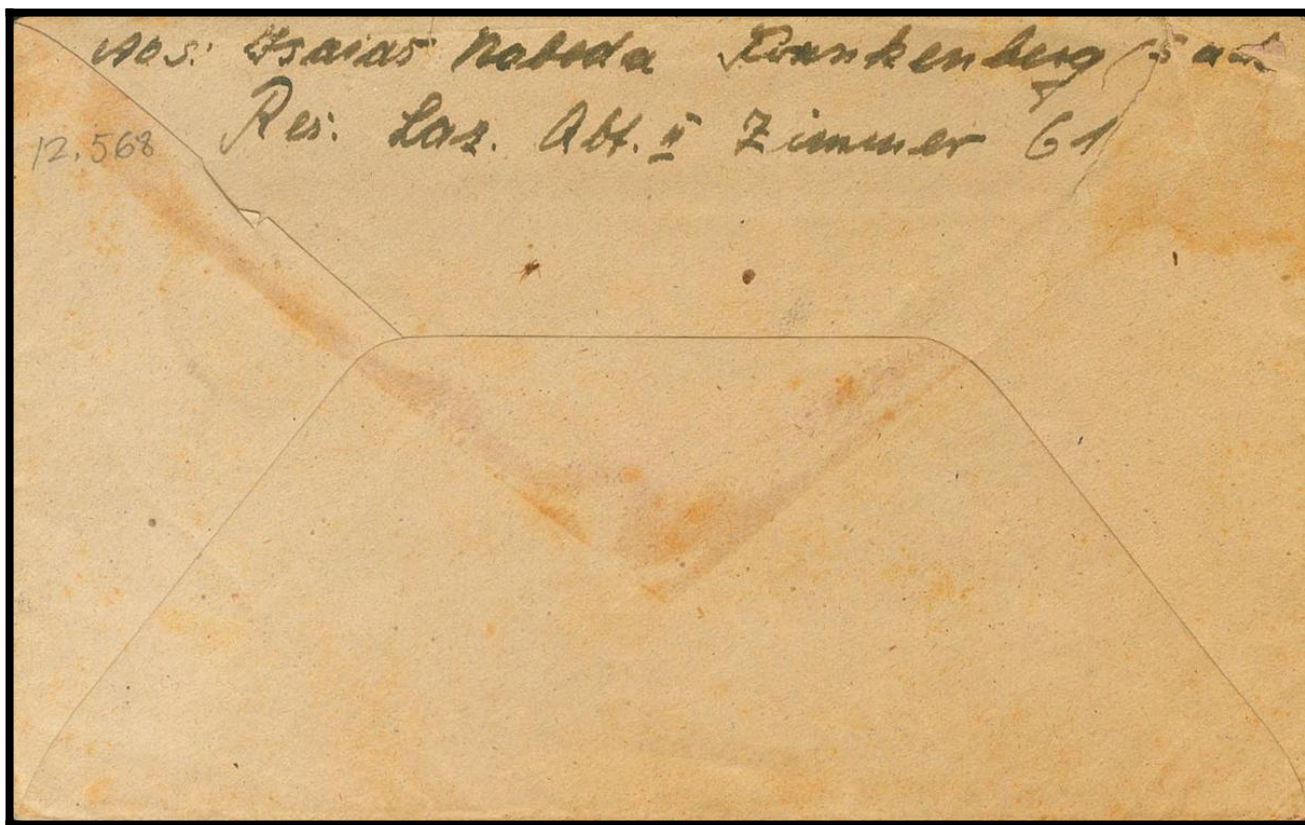 Abs: Isaias Nabeda Frankenberg / Sach
Res: Laz. Abt. II Zimmer 61
12.568